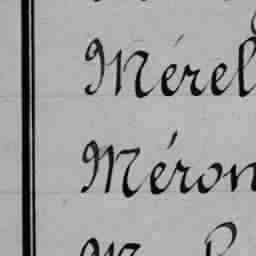 Mérel
Méron